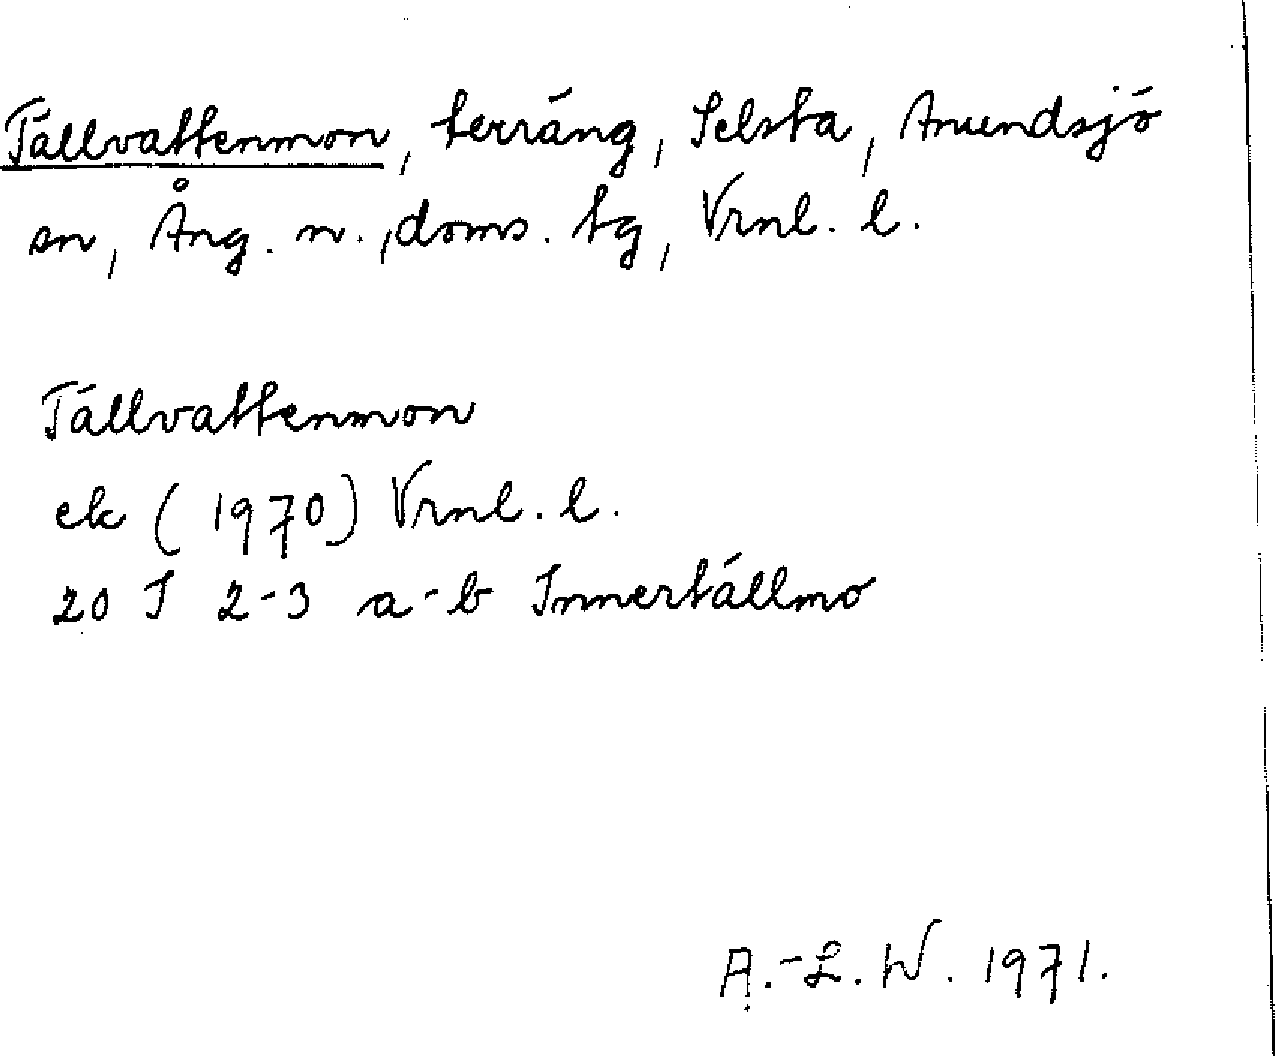 Tällvattenmon, terräng, Selsta, Anundsjö
sn, Ång. n., doms. tg, Vrnl. l.
Tällvattenmon
ek (1970) Vrnl. l.
20 J 2-3 a-b Innertällmo
A.-L. W. 1971.